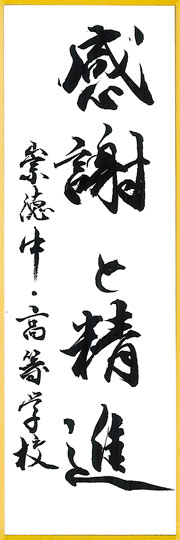 感謝と精進
崇徳中・高等学校